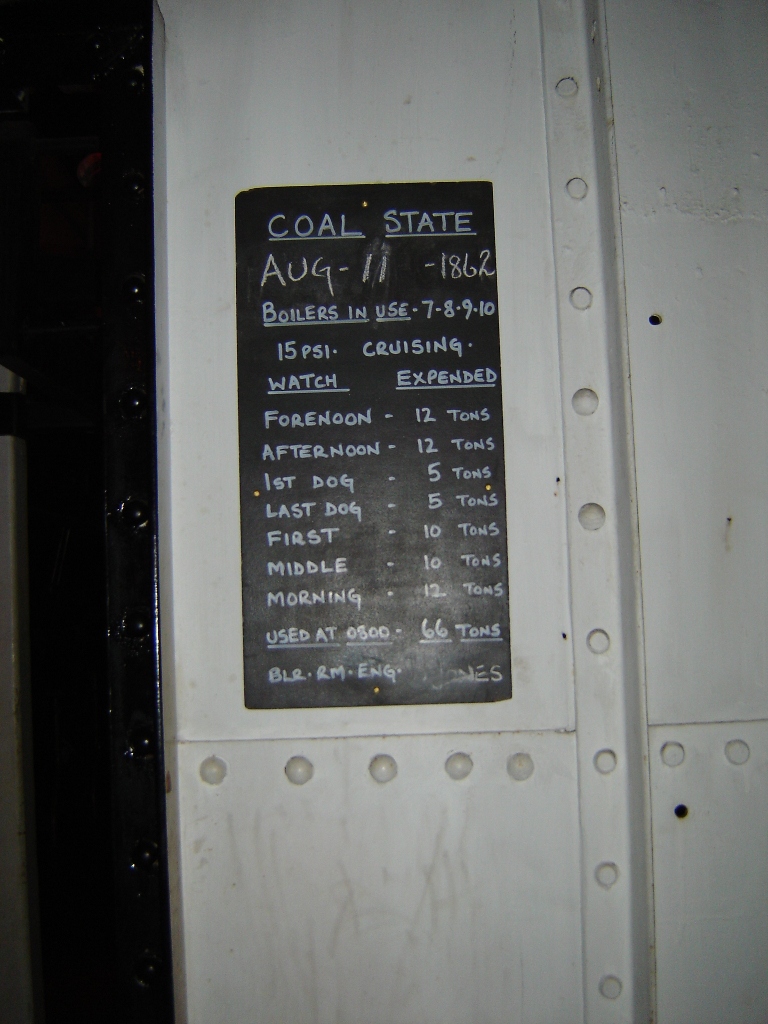 COAL STATE
AUG-11 -1862
BOILERS IN USE·7-8·9·10
15 PSI· CRUISING·
WATCH EXPENDED
FORENOON - 12 TONS
AFTERNOON - 12 TONS
1ST DOG - 5 TONS
LAST DOG - 5 TONS
FIRST - 10 TONS
MIDDLE - 10 TONS
MORNING - 12 TONS
USED AT 0800 - 66 TONS
BLR·RM·ENG·